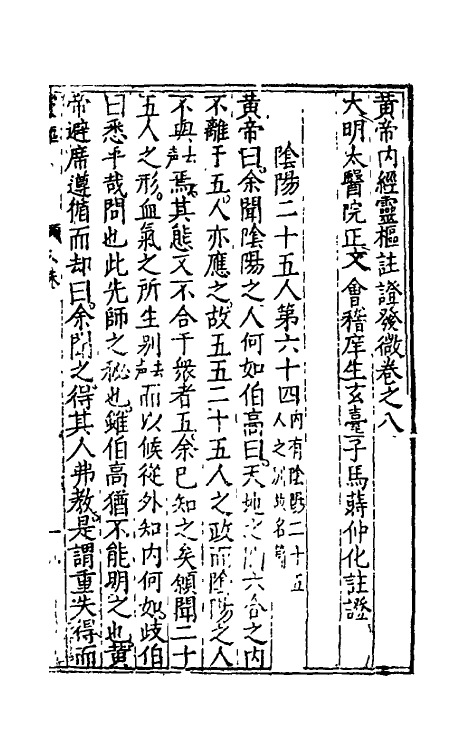 黃帝內經靈樞註證發微卷之八
大明太醫院正文會稽庠生玄臺子馬蒔仲化註證
陰陽二十五人第六十四
內有陰陽二十五
人之 故名篇
黃帝曰余聞陰陽之人何如伯高曰天地之間六合之內
不離于五人亦應之故五五二十五人之政而陰陽之人
不與去聲焉其態又不合于衆者五余已知之矣願聞二十
五人之形血氣之所生别去聲而以候從外知內何如歧伯
曰悉乎哉問也此先師之秘也雖伯高猶不能明之也黃
帝避席遵循而却曰余聞之得其人弗教是謂重失得而